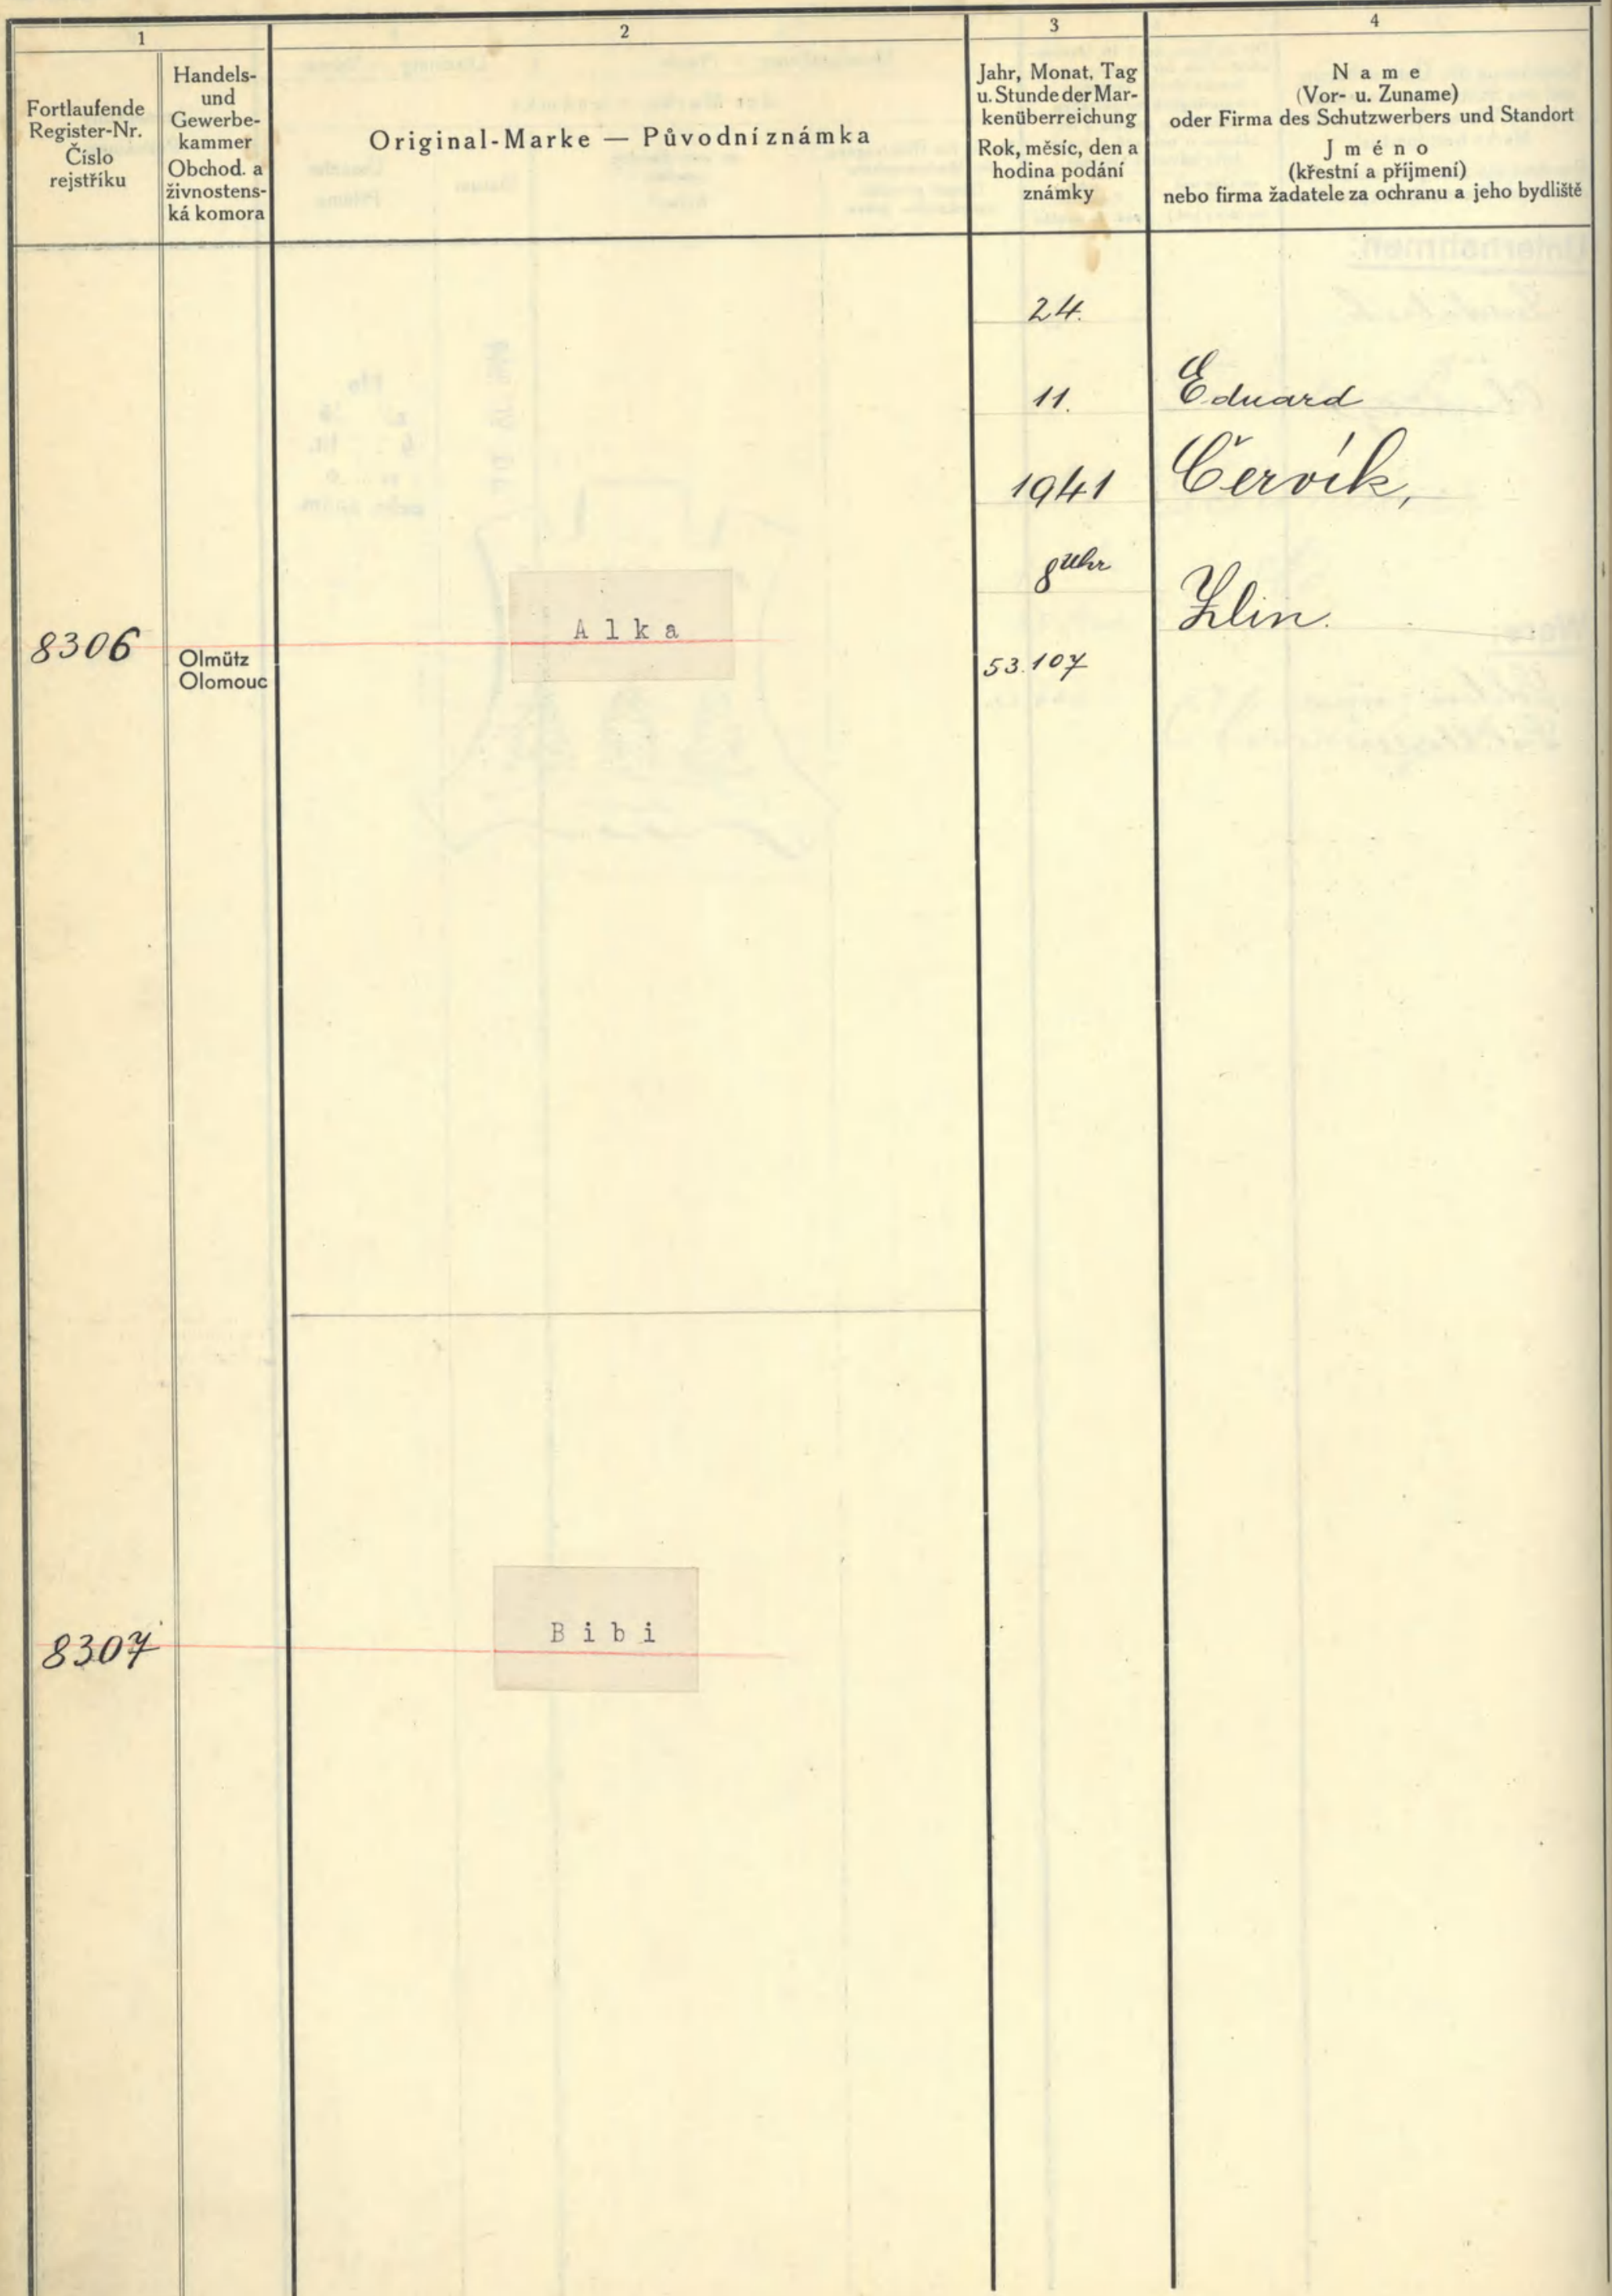 1
Fortlaufende
Register-Nr.
Číslo
rejstříku
Handels-
und
Gewerbe-
kammer
Obchod. a
živnostens-
ká komora
2
Original-Marke — Původní známka
3
Jahr, Monat, Tag
u. Stunde der Mar-
kenüberreichung
Rok, měsíc, den a
hodina podání
známky
4
Name
(Vor- u. Zuname)
oder Firma des Schutzwerbers und Standort
Jméno
(křestní a příjmení)
nebo firma žadatele za ochranu a jeho bydliště
8306
Olmütz
Olomouc
Alka
24.
11.
1941
8 Uhr
53.107
Eduard
Červík,
Zlin.
8307
Bibi